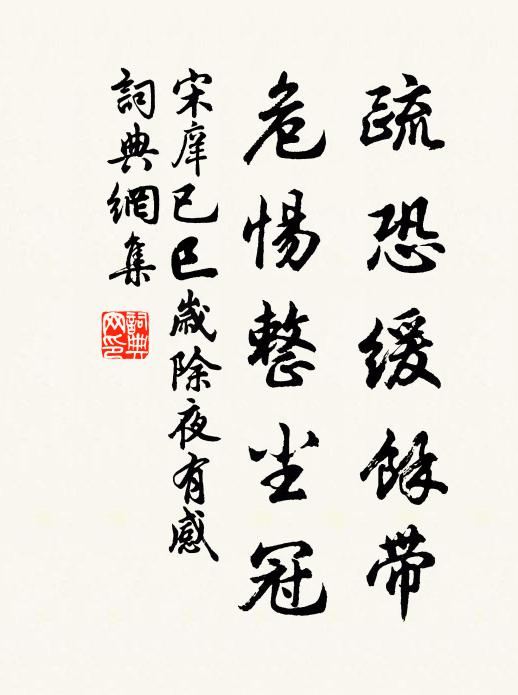 疏恐緩餘帶
危惕整尘冠
宋庠己巳歲除夜有感
詞典網集
詞典网印